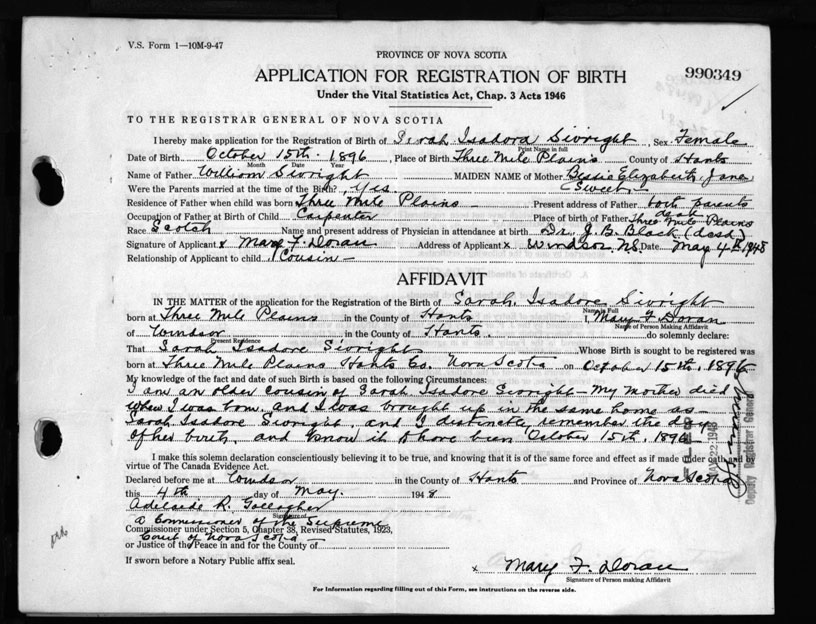 V.S. Form 1—10M-9-47
PROVINCE OF NOVA SCOTIA
APPLICATION FOR REGISTRATION OF BIRTH
990349
Under the Vital Statistics Act, Chap. 3 Acts 1946
TO THE REGISTRAR GENERAL OF NOVA SCOTIA
I hereby make application for the Registration of Birth of Sarah Isadora Sivright, Sex Female
Print Name in full
Date of Birth October 15th. 1896, Place of Birth Three Mile Plains County of Hants
Month Date Year
Name of Father William Sivright MAIDEN NAME of Mother Bessie Elizabeth Jane
Were the Parents married at the time of the Birth?, Yes. (Sweet)
Residence of Father when child was born Three Mile Plains Present address of Father both parents
dead
Occupation of Father at Birth of Child Carpenter Place of birth of Father Three Mile Plains
Race Scotch Name and present address of Physician in attendance at birth Dr. J. B. Black (decsd)
Signature of Applicant x Mary F. Doran Address of Applicant x Windsor, N.S. Date May 4th 1948
Relationship of Applicant to child, Cousin
AFFIDAVIT
IN THE MATTER of the application for the Registration of the Birth of Sarah Isadore Sivright
Name in Full
born at Three Mile Plains in the County of Hants I, Mary F. Doran
Name of Person Making Affidavit
of Windsor in the County of Hants. do solemnly declare:
Present Residence
That Sarah Isadore Sivright Whose Birth is sought to be registered was
born at Three Mile Plains Hants Co. Nova Scotia on October 15th, 1896
My knowledge of the fact and date of such Birth is based on the following Circumstances:
I am an older cousin of Sarah Isadore Sivright - My Mother died
when I was born, and I was brought up in the same home as
Sarah Isadore Sivright, and I distinctly remember the day
of her birth, and know it to have been October 15th, 1896
I make this solemn declaration conscientiously believing it to be true, and knowing that it is of the same force and effect as if made under oath and by
virtue of The Canada Evidence Act.
Declared before me at Windsor in the County of Hants and Province of Nova Scotia
this 4th day of May. 1948
Adelaide R. Gallagher
Signature of
a Commissioner of the Supreme
Commissioner under Section 5, Chapter 38, Revised Statutes, 1923,
Court of Nova Scotia
or Justice of the Peace in and for the County of
If sworn before a Notary Public affix seal.
x Mary F. Doran
Signature of Person making Affidavit
For Information regarding filling out of this Form, see instructions on the reverse side.
FILED
MAY 22 1948
Deputy Registrar General